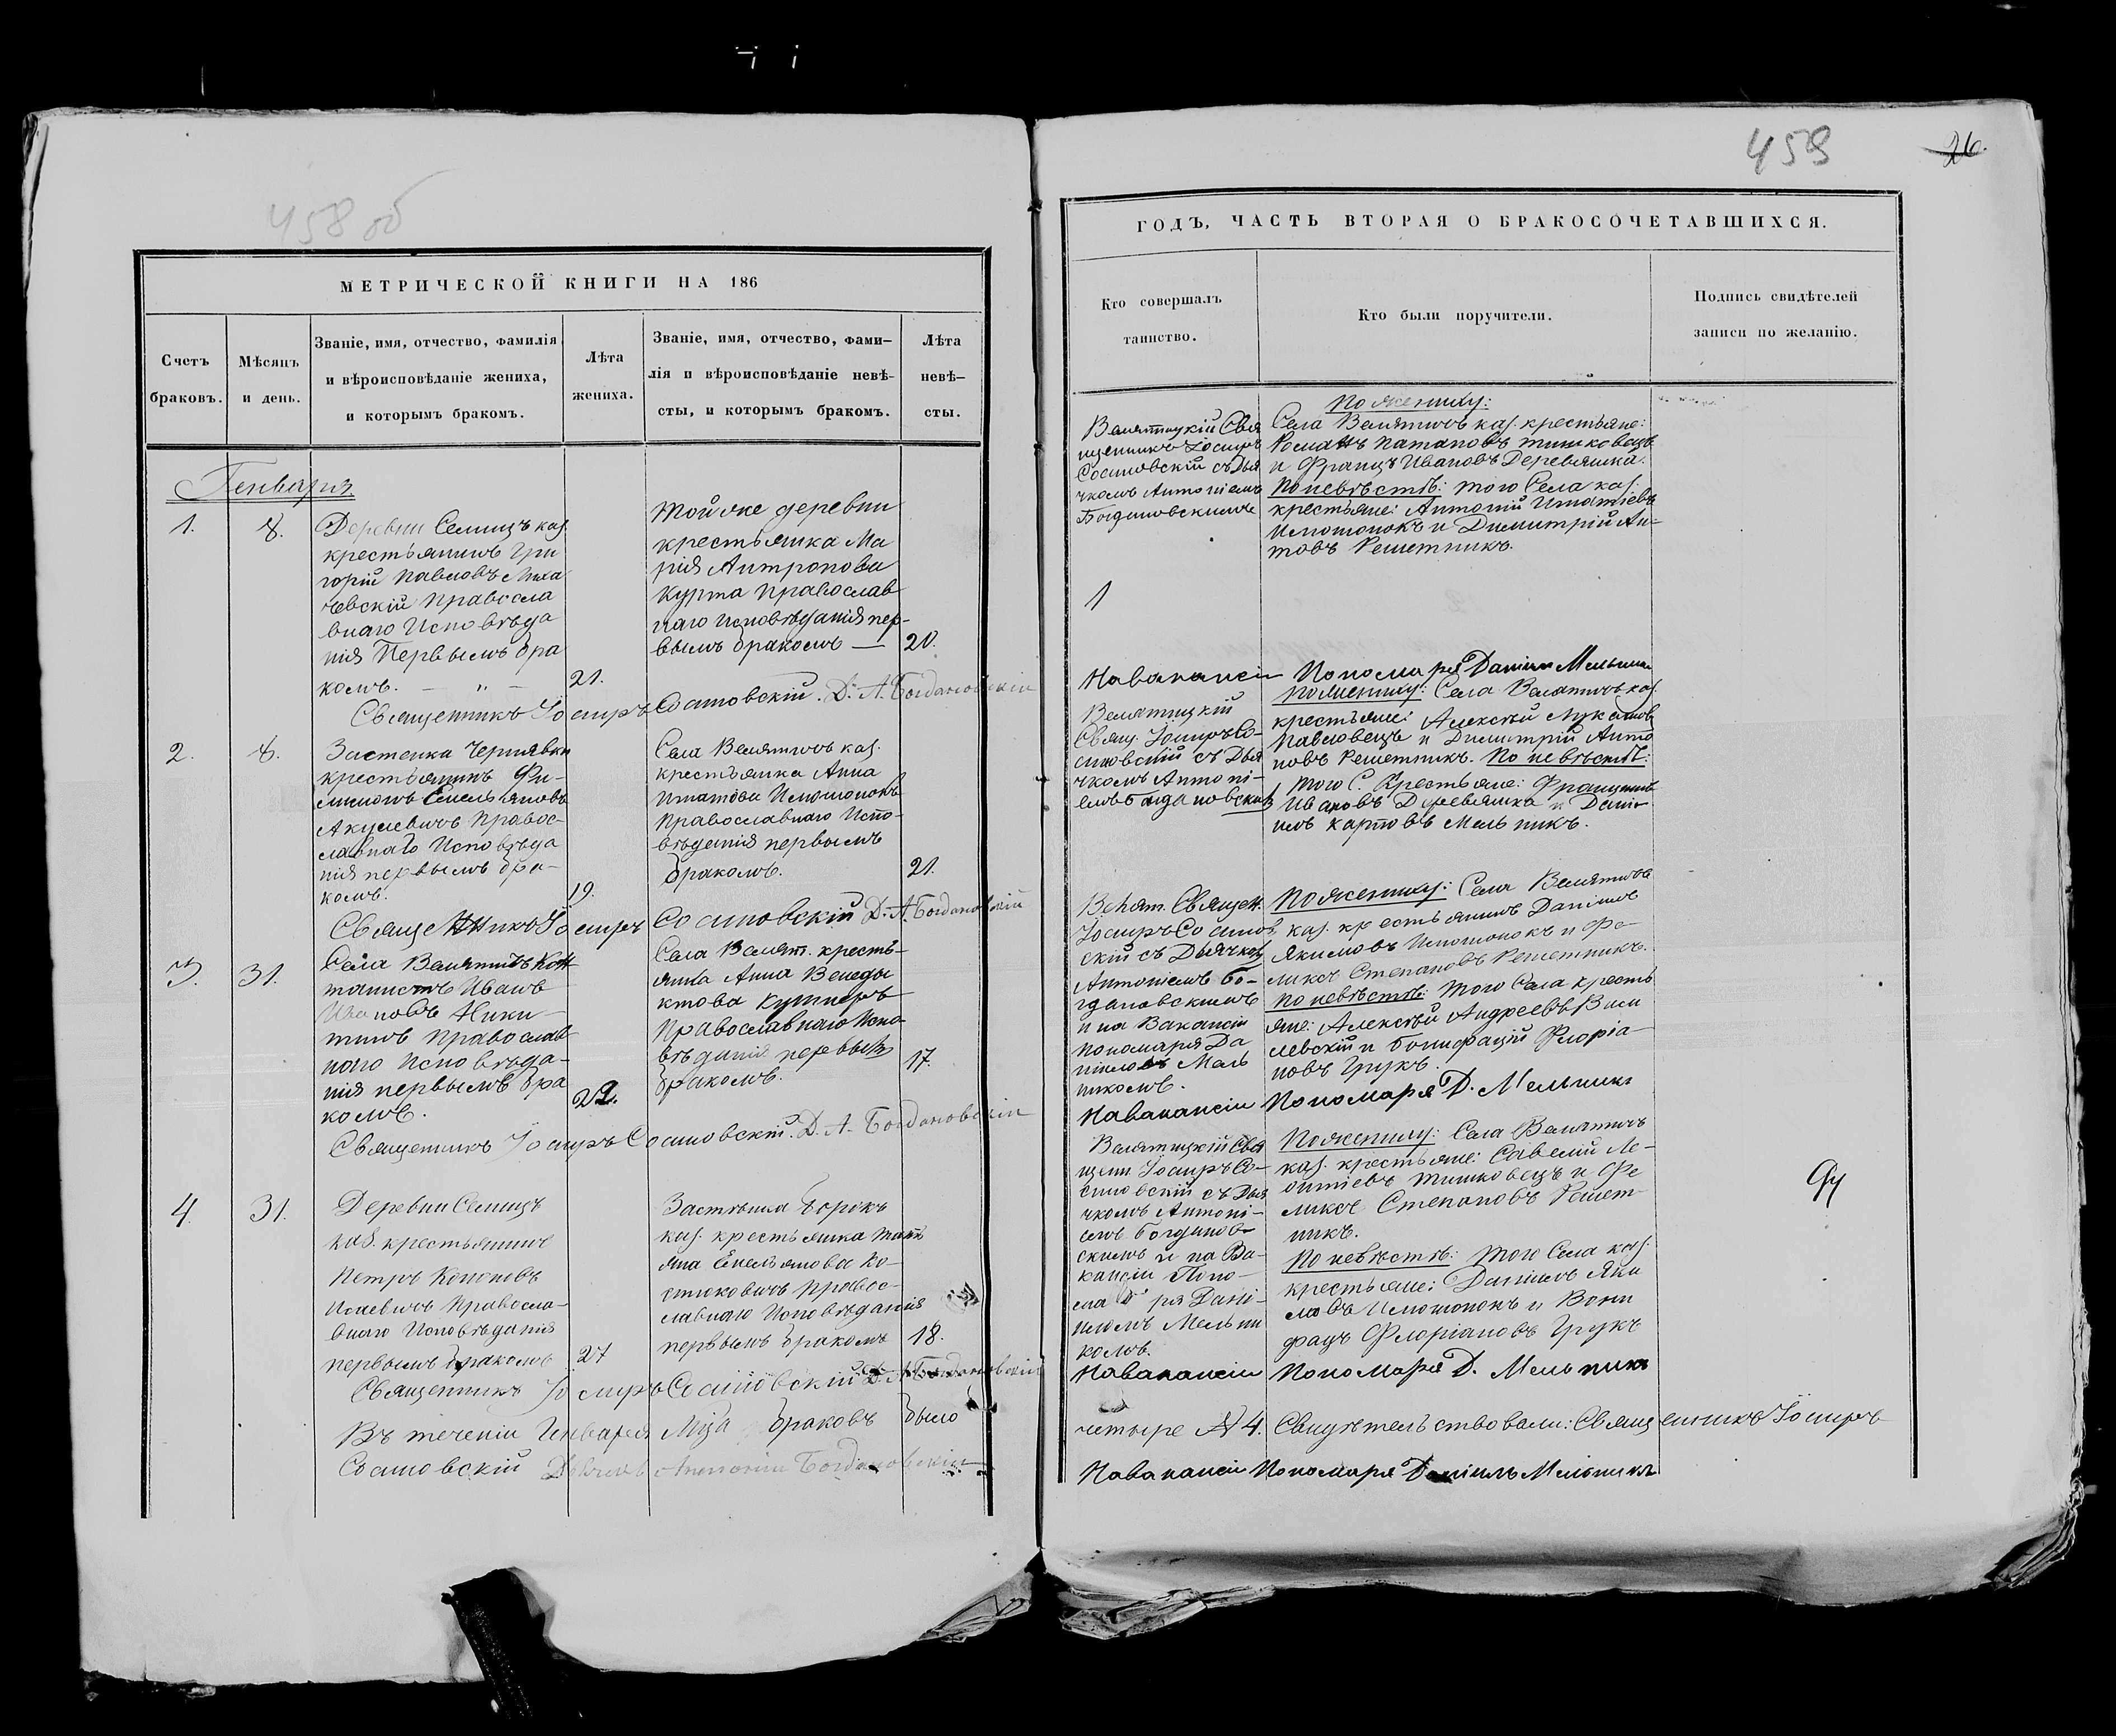 458 об
МЕТРИЧЕСКОЙ КНИГИ НА 186
Счетъ
браковъ.
Мѣсяцъ
и день.
Званіе, имя, отчество, фамилія
и вѣроисповѣданіе жениха,
и которымъ бракомъ.
Лѣта
жениха.
Званіе, имя, отчество, фами–
лія и вѣроисповѣданіе невѣ–
сты, и которымъ бракомъ.
Лѣта
невѣ–
сты.
Генваря
1.
8.
Деревни Селищъ каз.
крестьянинъ Гри
горій Павловъ Миха
чевскій Правосла
внаго Исповѣда
нія Первымъ бра
комъ. — „ —
21.
Той же деревни
крестьянка Ма
рія Антропова
Курта Православ
наго исповѣданія пер-
вымъ бракомъ —
20.
Священникъ Іосифъ Сосиновскій. Д. А. Богдановскій
2.
8.
Застенка Чернявки
крестьянинъ Фи-
лимонъ Емельяновъ
Акулевичъ Правос-
лавнаго Исповѣда
нія первымъ бра-
комъ.
19.
Села Велятичъ каз.
крестьянка Анна
Игнатова
Православнаго Испо-
вѣданія первымъ
бракомъ.
21.
Священникъ Іосифъ Сосиновскій Д. А. Богдановскій
3.
31.
Села Велятичъ Кон
тонистъ Иванъ
Ивановъ Ники-
тинъ Православ
наго Исповѣда-
нія первымъ бра
комъ.
22.
Села Велят. кресть-
янка Анна Венеди
ктова Кушнеръ
Православнаго Испо-
вѣданія первымъ
бракомъ.
17.
Священникъ Іосифъ Сосиновскій. Д. А. Богдановскій
4.
31.
Деревни Селищъ
каз. крестьянинъ
Петръ Кононовъ
Православ-
внаго Исповѣданія
первымъ бракомъ
27
Застѣнка Борокъ
каз. крестьянка Тать
яна Емельянова Ко-
стюковичъ Правос-
лавнаго Исповѣданія
первымъ бракомъ
18.
Священникъ Іосифъ Сосиновскій Д. А. Богдановскій
Въ теченіи Генваря Мца браковъ было
Сосиновскій Дьячекъ Антоній Богдановскій
459
26.
ГОДЪ, ЧАСТЬ ВТОРАЯ О БРАКОСОЧЕТАВШИХСЯ.
Кто совершалъ
таинство.
Кто были поручители.
Подпись свидѣтелей
записи по желанію.
Велятицкій Свя
щенникъ Іосифъ
Сосиновскій съ Дья
чкомъ Антоніемъ
Богдановскимъ
По жениху:
Села Велятичъ каз. крестьяне:
Романъ Патаповъ Тишковецъ
и Францъ Ивановъ Деревяшка.
По невѣстѣ: того Села каз.
крестьяне: Антоній Игнатіевъ
и Димитрій Ан-
товъ Решетникъ.
1
На ваканси Пономаря Даніилъ Мельникъ
Велятицкій
Свящ. Іосифъ Со-
синовскій съ Дья
чкомъ Антоні-
емъ Богдановскимъ
По жениху: Села Велятичъ каз.
крестьяне: Алексѣй Лукановъ
Павловецъ и Димитрій Анто
новъ Решетникъ. По невѣстѣ:
того С. Крестьяне: Францишкъ
Ивановъ Деревяшка и Дані-
илъ Карповъ Мельникъ.
Велят. Священ.
Іосифъ Сосинов
скій съ Дьячком
Антоніемъ Бо-
гдановскимъ
и на Вакансіи
пономаря Да
ніиломъ Мель
никомъ.
По жениху: Села Велятичъ
каз. крестьянинъ Даніилъ
Якимовъ и Фе-
ликсъ Степановъ Решетникъ.
По невѣстѣ: того Села кресть
яне: Алексѣй Андреевъ Васи
левскій и Бонифацій Флоріа-
новъ Грукъ.
На ваканcіи Пономаря Д. Мельникъ
Велятицкій Свя
щенн Іосифъ Со-
синовскій съ Дья
чкомъ Антоні-
емъ Богданов-
скимъ и на Ва-
кансіи Поно-
маря Дані-
иломъ Мельни
комъ.
По жениху: Села Велятичъ
каз. крестьяне: Савелій Ле-
онтіевъ Тишковецъ и Фе
ликсъ Степановъ Решет-
никъ.
По невѣстѣ: того Села каз.
крестьяне: Даніилъ Яки
мовъ и Вони
фацъ Флоріановъ Грукъ
На вакансіи Пономаря Д. Мельникъ
четыре № 4. Свидѣтельствовали: Священникъ Іосифъ
На вакансіи Пономаря Даніилъ Мельникъ